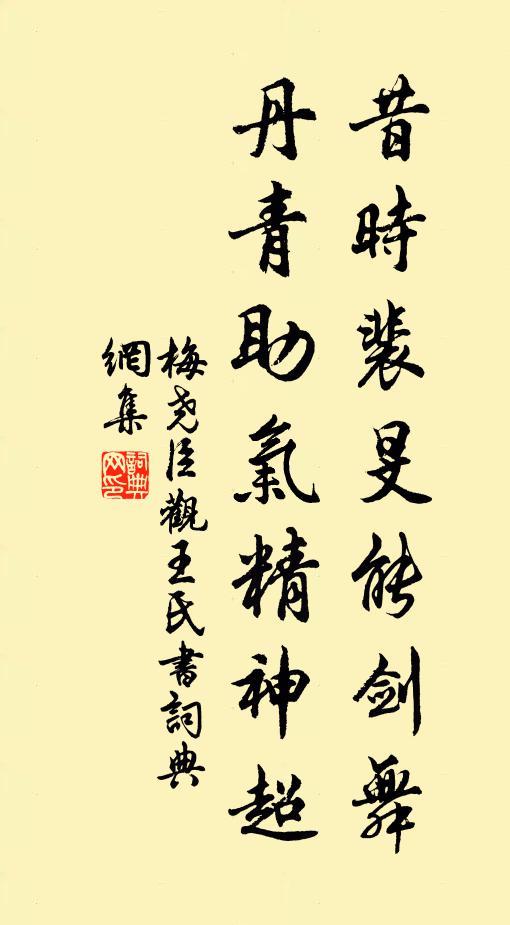 昔時裴旻能劍舞
丹青助氣精神超
梅尧臣觀王氏書詞典
網集
詞典網印